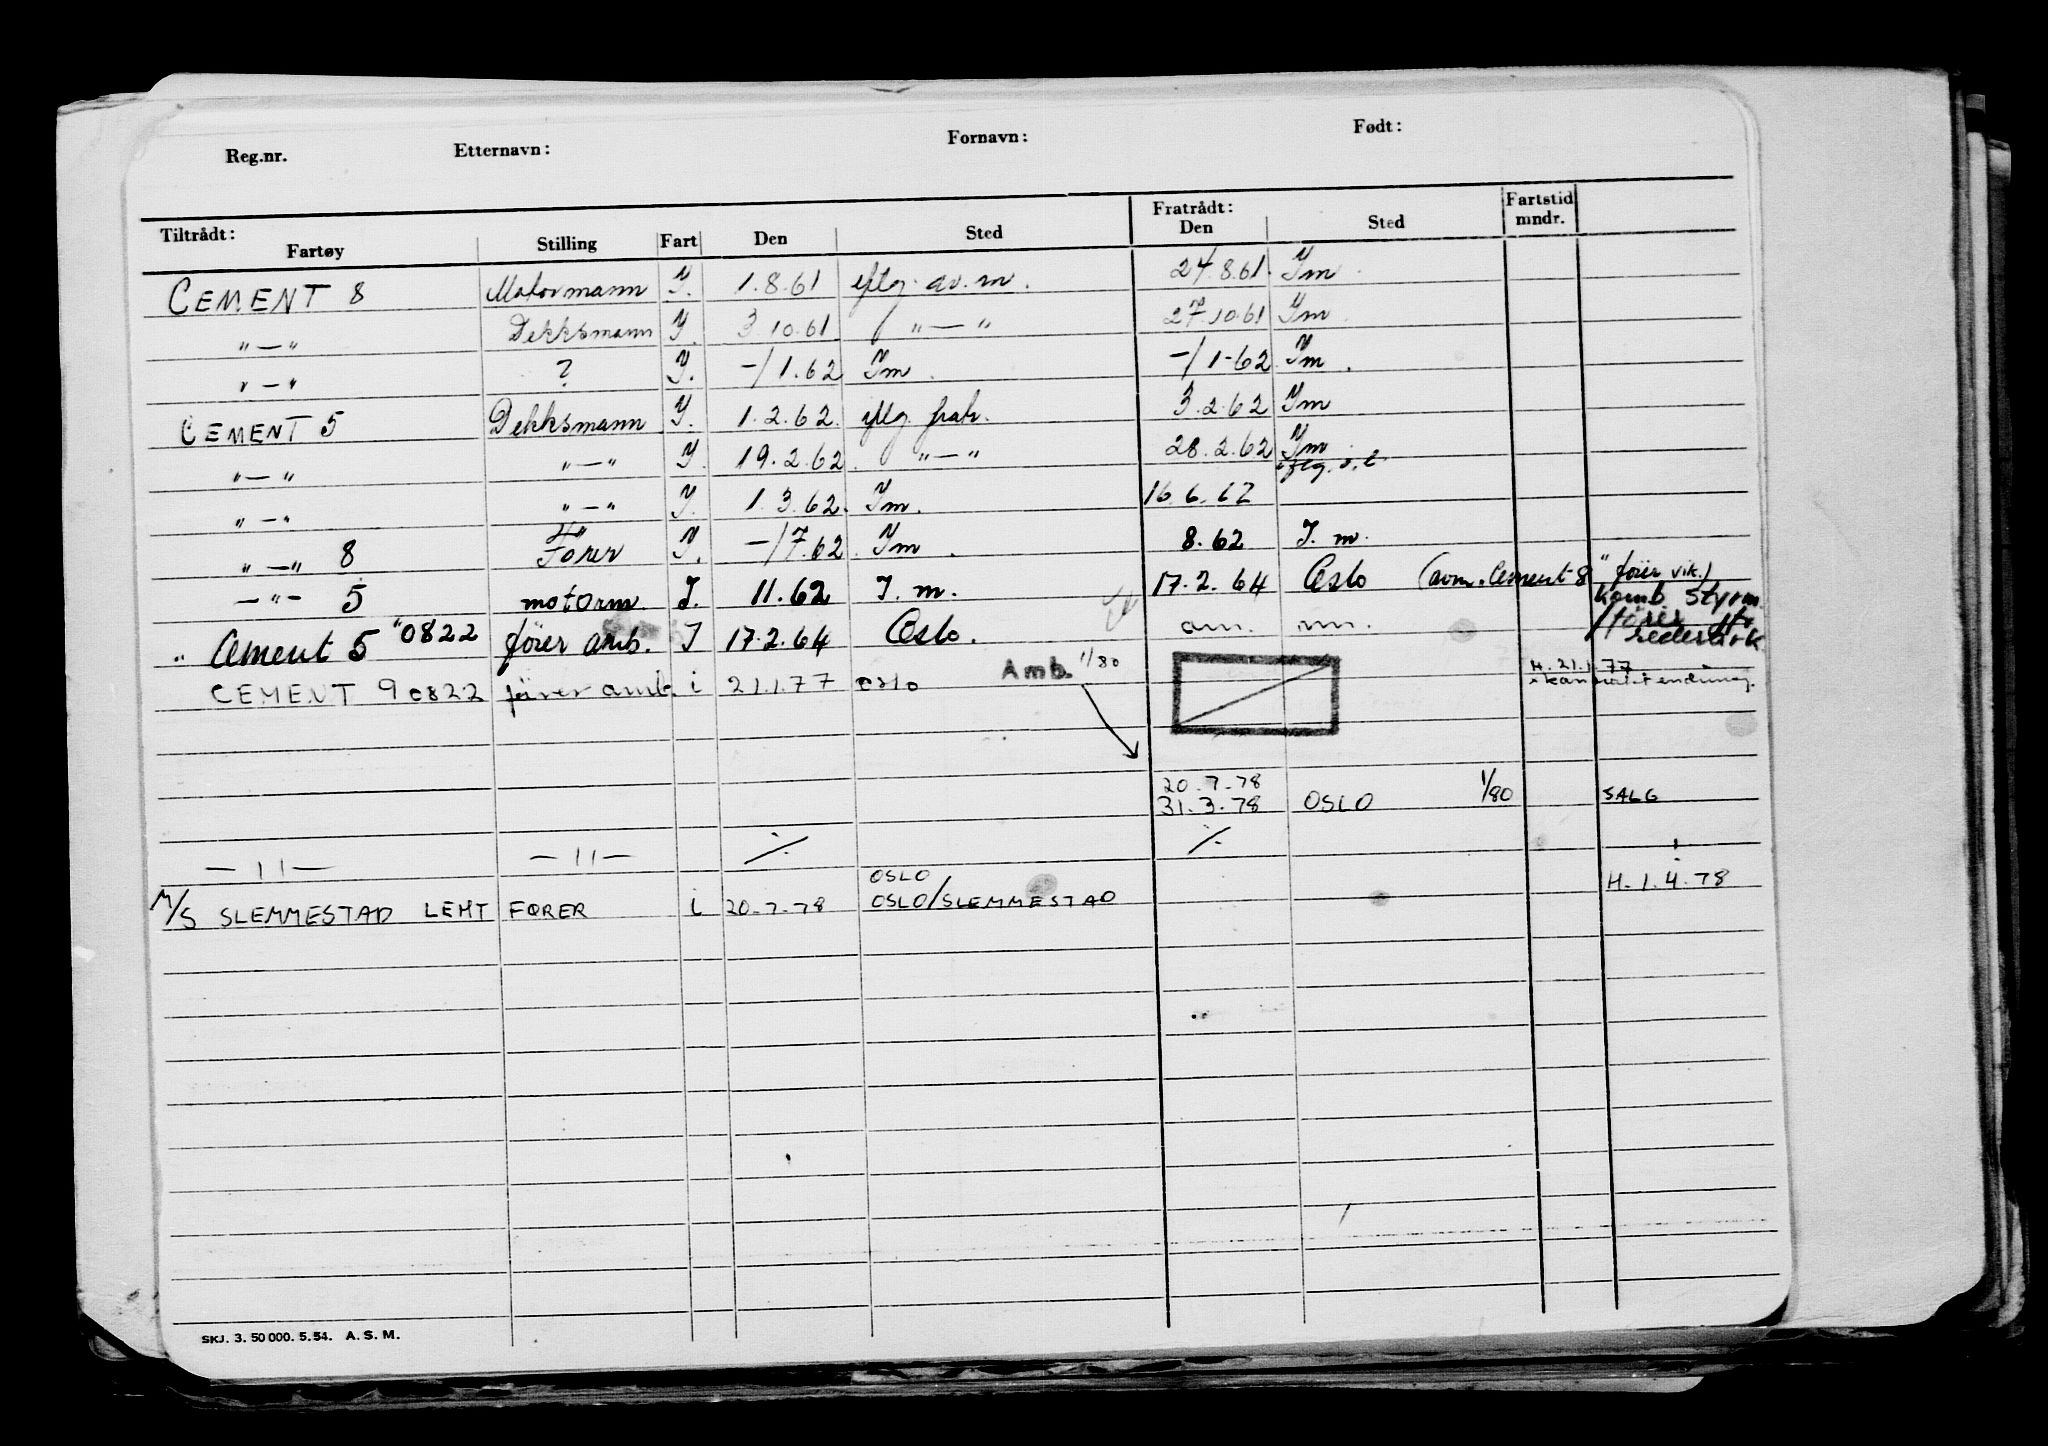 Reg.nr. Etternavn: Fornavn: Født:
Tiltrådt: Fratrådt: Fartstid
Fartøy Stilling Fart Den Sted Den Sted mndr.
CEMENT 8 Motormann I. 1.8.61 iflg. av. m. 24.8.61. Im.
" — " Dekksmann I. 3.10.61 " — " 27.10.61 Im.
" — " ? I. -/1.62 Im. -/1-62 Im.
CEMENT 5 Dekksmann I. 1.2.62. iflg. fratr. 3.2.62 Im
" — " " — " I. 19.2.62. " — " 28.2.62 Im
" — " " — " I. 1.3.62. Im. 16.6.62 iflg.
" — " 8 Fører I. -/7.62. Im. 8.62 I. m.
— " — 5 motorm. I. 11.62 I. m. 17.2.64 Oslo (avm. Cement 8 " fører vik.)
" Cement 5 "0822 fører amb. I 17.2.64 Oslo. am. m. komb styrm.
/fører
CEMENT 9 0822 fører amb. i 21.1.77 oslo Amb. 1/80 H. 21.1.77
20.7.78
31.3.78 OSLO 1/80 SALG
— 11 — — 11 — ⁒ ⁒
OSLO H. 1.4.78
M/S SLEMMESTAD LEHT FØRER i 20.7.78 OSLO/SLEMMESTAD
SKJ. 3. 50 000. 5. 54. A. S. M.